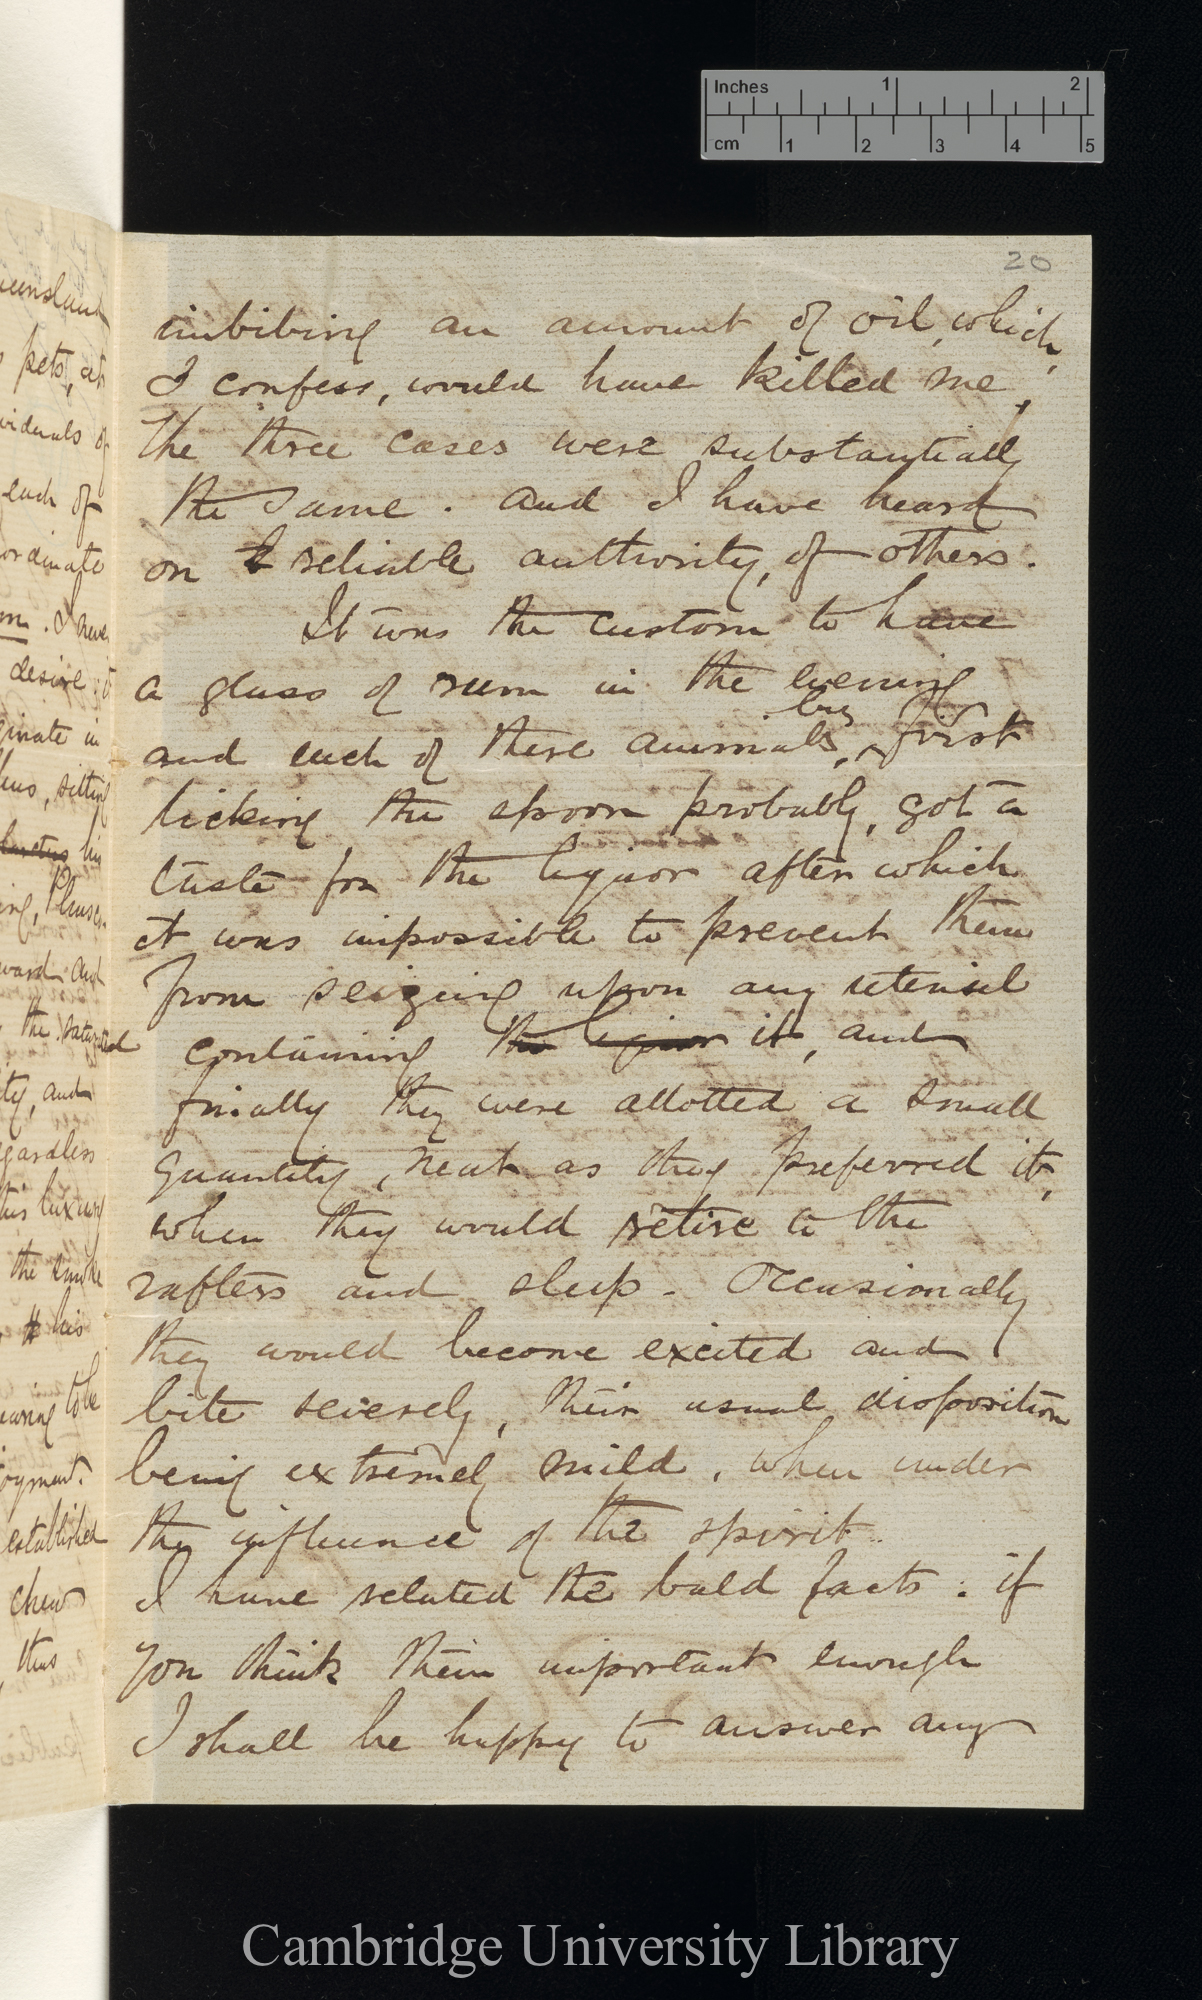 Inches 1 2
cm 1 2 3 4 5
20
imbibing an amount of oil, which,
I confess, would have killed me,
The three cases were substantially
the same. and I have heard
on reliable authority, of others.
It was the custom to have
a glass of rum in the evening
and each of these animals, by first
licking the spoon probably, got a
taste for the liquor after which
it was impossible to prevent them
from seizing upon any utensil
containing the liquor it, and
finally they were allotted a small
quantity, neat as they preferred it,
when they would retire to the
rafters and sleep. Occasionally
they would become excited and
bite severely, their usual disposition
being extremely mild, when under
the influence of the spirit.
I have related the bald facts: if
you think them important enough
I shall be happy to answer any
pets, at
each of
desire
sitting
his
ward and
the saturated
and
the smoke
his
to be
established
chew
thus
Cambridge University Library